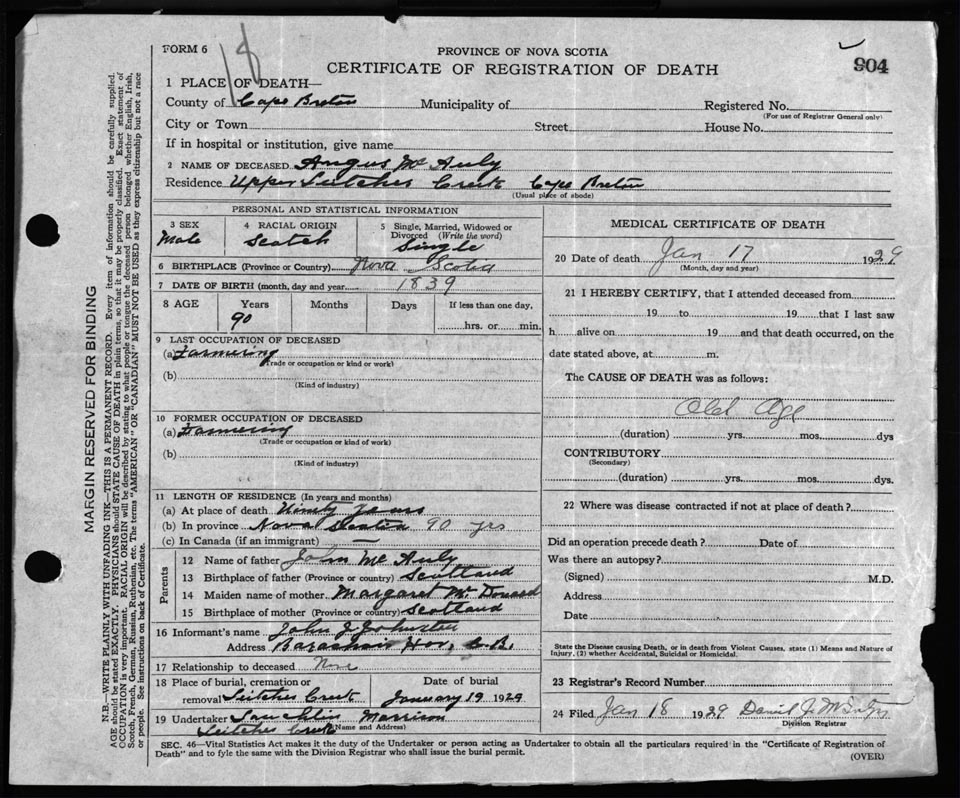 FORM 6
18
PROVINCE OF NOVA SCOTIA
CERTIFICATE OF REGISTRATION OF DEATH
904
MARGIN RESERVED FOR BINDING
N.B.—WRITE PLAINLY WITH UNFADING INK—THIS IS A PERMANENT RECORD. Every item of information should be carefully supplied.
AGE should be stated EXACTLY. PHYSICIANS should STATE CAUSE OF DEATH in plain terms, so that it may be properly classified. Exact statement of
OCCUPATION is very important. RACIAL ORIGIN will be described by stating to what people or tongue the deceased person belonged whether English, Irish,
Scotch, French, German, Russian, Ruthenian, etc. The terms "AMERICAN" OR "CANADIAN" MUST NOT BE USED as they express citizenship but not a race
or people. See instructions on back of Certificate.
1 PLACE OF DEATH—
County of Cape Breton Municipality of Registered No.
(For use of Registrar General only)
City or Town Street House No.
If in hospital or institution, give name
2 NAME OF DECEASED Angus Mc Auly
Residence Upper Leitches Creek Cape Breton
(Usual place of abode)
PERSONAL AND STATISTICAL INFORMATION
3 SEX
Male
4 RACIAL ORIGIN
Scotch
5 Single, Married, Widowed or
Divorced (Write the word)
Single
6 BIRTHPLACE (Province or Country) Nova Scotia
7 DATE OF BIRTH (month, day and year) 1839
8 AGE Years Months Days If less than one day,
90 hrs. or min.
9 LAST OCCUPATION OF DECEASED
(a) Farmering
(Trade or occupation or kind or work)
(b)
(Kind of industry)
10 FORMER OCCUPATION OF DECEASED
(a) Farmering
(Trade or occupation or kind of work)
(b)
(Kind of industry)
11 LENGTH OF RESIDENCE (In years and months)
(a) At place of death Years
(b) In province Nova Scotia 90 yrs
(c) In Canada (if an immigrant) —
Parents
12 Name of father John Mc Auly
13 Birthplace of father (Province or country) Scotland
14 Maiden name of mother Margaret Mc Donald
15 Birthplace of mother (Province or country) Scotland
16 Informant's name John J Johnston
Address Barachois Hbr, C.B.
17 Relationship to deceased None
18 Place of burial, cremation or Date of burial
removal Leitches Creek January 19 1929
19 Undertaker Lauchlin Morrison
(Name and Address)
Leitches Creek
MEDICAL CERTIFICATE OF DEATH
20 Date of death Jan 17 1929
(Month, day and year)
21 I HEREBY CERTIFY, that I attended deceased from
19 to 19 that I last saw
h alive on 19 and that death occurred, on the
date stated above, at m.
The CAUSE OF DEATH was as follows:
Old Age
(duration) yrs. mos. dys
CONTRIBUTORY
(Secondary)
(duration) yrs. mos. dys.
22 Where was disease contracted if not at place of death?
Did an operation precede death? Date of
Was there an autopsy?
(Signed) M.D.
Address
Date
State the Disease causing Death, or in death from Violent Causes, state (1) Means and Nature of
Injury, (2) whether Accidental, Suicidal or Homicidal.
23 Registrar's Record Number
24 Filed Jan 18 1929 Daniel J
Division Registrar
SEC. 46—Vital Statistics Act makes it the duty of the Undertaker or person acting as Undertaker to obtain all the particulars required in the "Certificate of Registration of
Death" and to fyle the same with the Division Registrar who shall issue the burial permit.
(OVER)